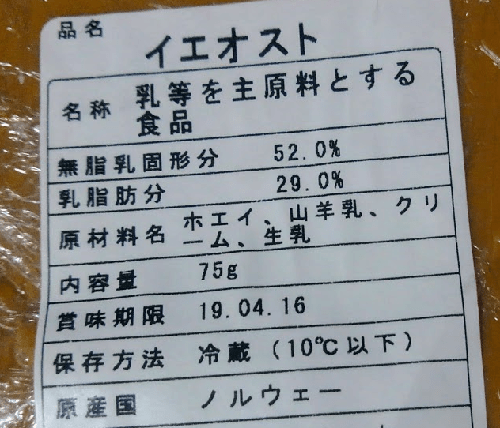 品名 イエオスト
名称 乳等を主原料とする
食品
無脂乳固形分 52.0%
乳脂肪分 29.0%
原材料名 ホエイ、山羊乳、クリ
ーム、生乳
内容量 75g
賞味期限 19.04.16
保存方法 冷蔵(10℃以下)
原産国 ノルウェー